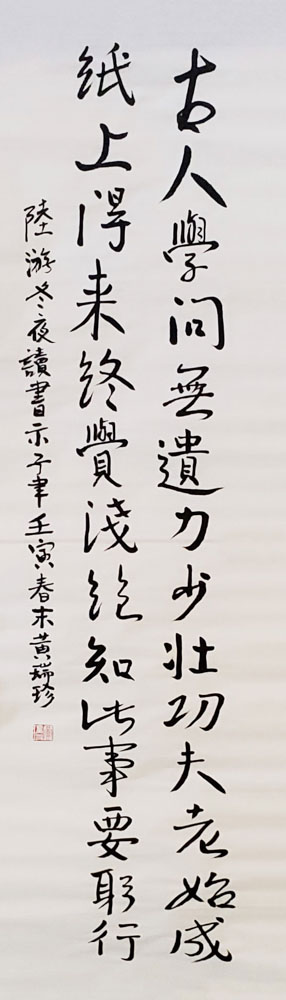 古人學问無遺力少壯功夫老始成
纸上得来终覺淺绝知此事要躬行
陸游冬夜讀書示子聿壬寅春末黄瑞珍